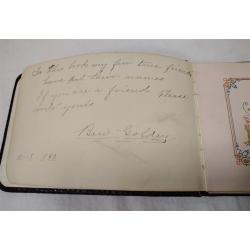 In this book my few true friends
have put their names
If you're a friend please
write yours
Ben Golden